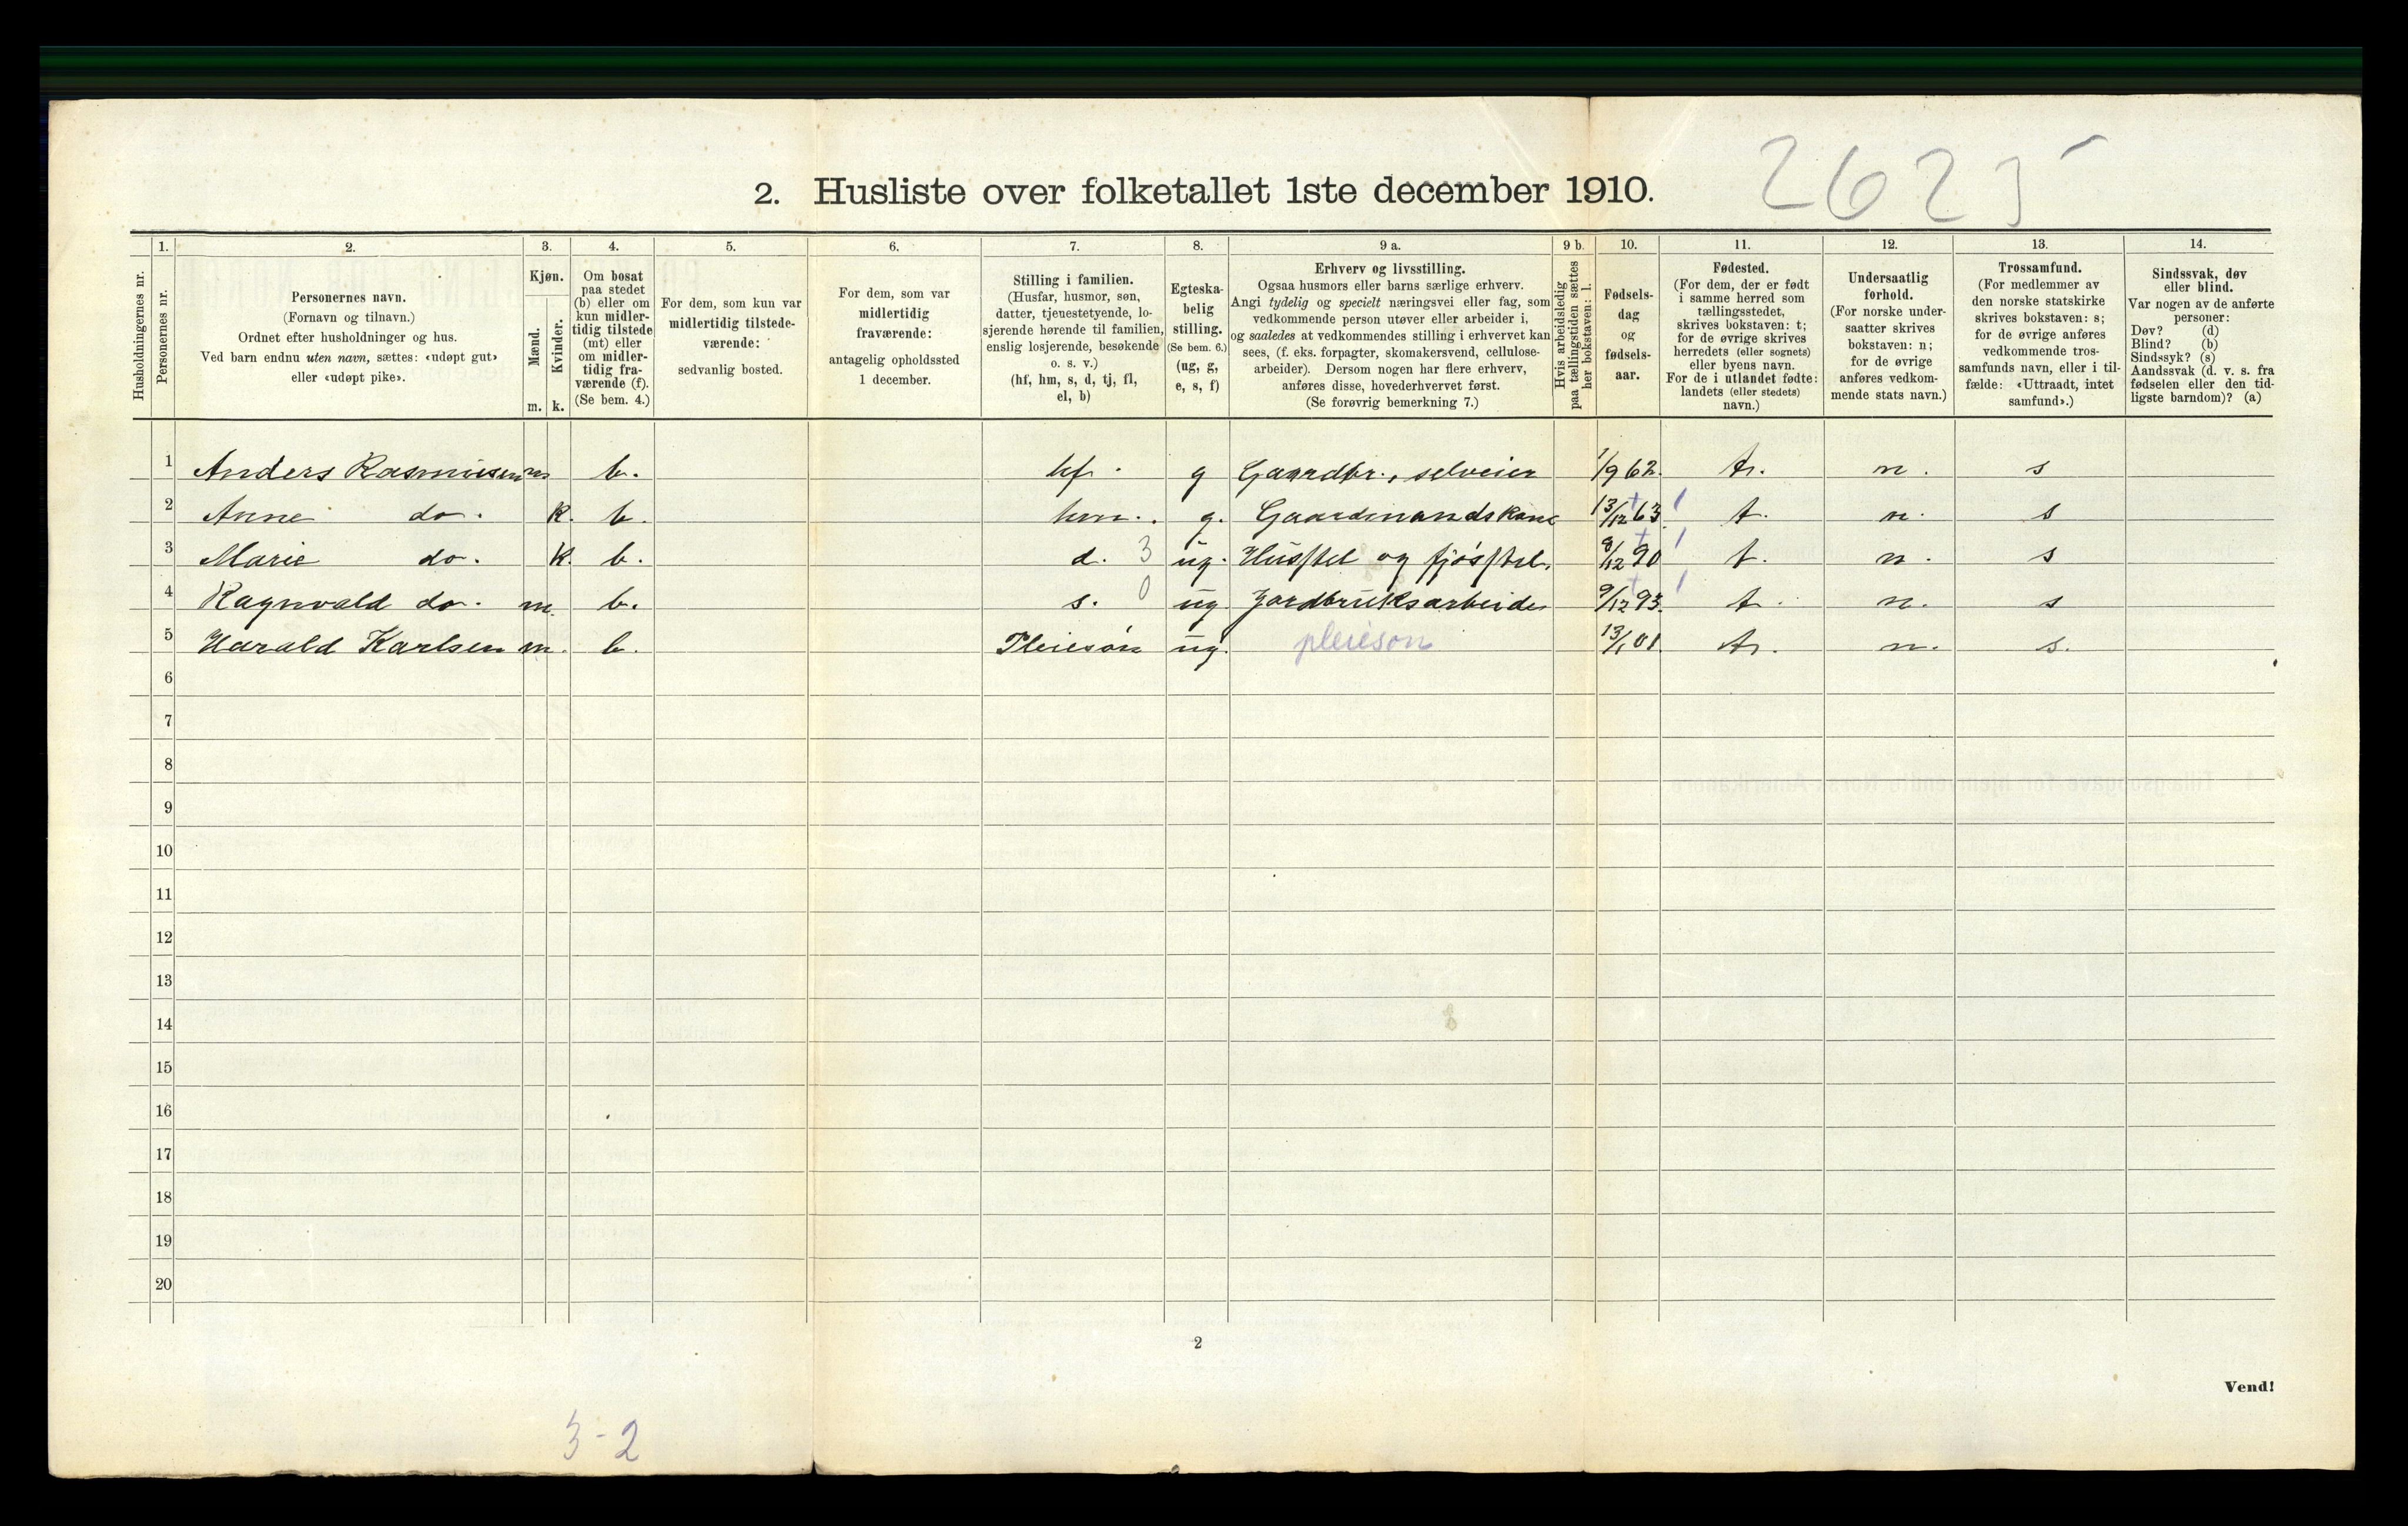 2625
2. Husliste over folketallet 1ste december 1910.
1. 2. 3. 4. 5. 6. 7. 8. 9 a. 9 b. 10. 11. 12. 13. 14.
Husholdningernes nr.
Personernes nr.
Personernes navn.
(Fornavn og tilnavn.)
Ordnet efter husholdninger og hus.
Ved barn endnu uten navn, sættes: «udøpt gut»
eller «udøpt pike».
Kjøn.
Mænd.
Kvinder.
m. k.
Om bosat
paa stedet
(b) eller om
kun midler-
tidig tilstede
(mt) eller
om midler-
tidig fra-
værende (f).
(Se bem. 4.)
For dem, som kun var
midlertidig tilstede-
værende:
sedvanlig bosted.
For dem, som var
midlertidig
fraværende:
antagelig opholdssted
1 december.
Stilling i familien.
(Husfar, husmor, søn,
datter, tjenestetyende, lo-
sjerende hørende til familien,
enslig losjerende, besøkende
o. s. v.)
(hf, hm, s, d, tj, fl,
el, b)
Egteska-
belig
stilling.
(Se bem. 6.)
(ug, g,
e, s, f)
Erhverv og livsstilling.
Ogsaa husmors eller barns særlige erhverv.
Angi tydelig og specielt næringsvei eller fag, som
vedkommende person utøver eller arbeider i,
og saaledes at vedkommendes stilling i erhvervet kan
sees, (f. eks. forpagter, skomakersvend, cellulose-
arbeider). Dersom nogen har flere erhverv,
anføres disse, hovederhvervet først.
(Se forøvrig bemerkning 7.)
Hvis arbeidsledig
paa tællingstiden sættes
her bokstaven: l.
Fødsels-
dag
og
fødsels-
aar.
Fødested.
(For dem, der er født
i samme herred som
tællingsstedet,
skrives bokstaven: t;
for de øvrige skrives
herredets (eller sognets)
eller byens navn.
For de i utlandet fødte:
landets (eller stedets)
navn.)
Undersaatlig
forhold.
(For norske under-
saatter skrives
bokstaven: n;
for de øvrige
anføres vedkom-
mende stats navn.)
Trossamfund.
(For medlemmer av
den norske statskirke
skrives bokstaven: s;
for de øvrige anføres
vedkommende tros-
samfunds navn, eller i til-
fælde: «Uttraadt, intet
samfund».)
Sindssvak, døv
eller blind.
Var nogen av de anførte
personer:
Døv? (d)
Blind? (b)
Sindssyk? (s)
Aandssvak (d. v. s. fra
fødselen eller den tid-
ligste barndom)? (a)
1 Anders Rasmussen m b. hf. g Gaardbr., selveier 1/9 62. t. n. s
2 Anne do. k. b. hm. g. Gaardmandskone 13/12 63 t. n. s
3 Marie do. k. b. d. 3 ug. Husstel og fjøsstel. 8/12 90 t. n. s
4 Ragnvald do. m. b. s. 0 ug. Jordbruksarbeider 9/12 93. t. n. s
5 Harald Karlsen m. b. Pleiesøn ug. pleiesøn 13/1 01. t. n. s.
6
7
8
9
10
11
12
13
14
15
16
17
18
19
20
2
Vend!
3-2